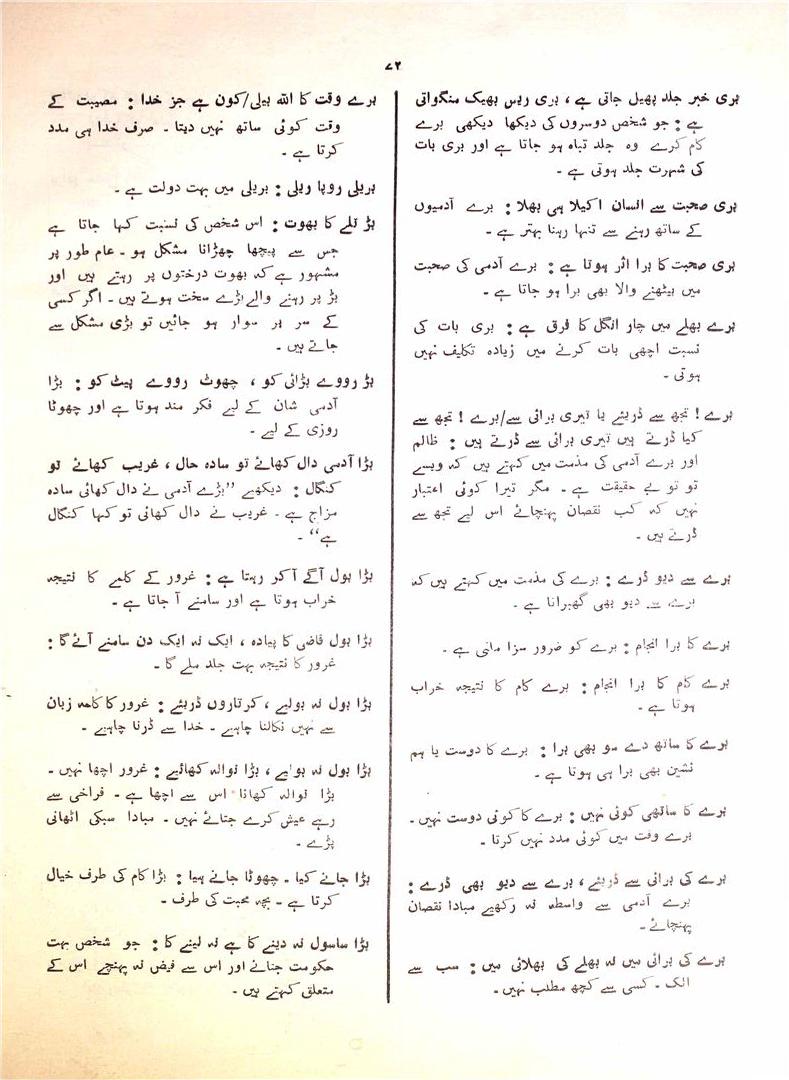 ۷۲
بری خبر جلد پھیل جاتی ہے ، بری ریس بھیک منگواتی
ہے : جو شخص دوسروں کی دیکھا دیکھی برے
کام کرے وہ جلد تباہ ہو جاتا ہے اور بری بات
کی شہرت جلد ہوتی ہے ۔
بری صحبت سے انسان اکیلا ہی بھلا : برے آدمیوں
کے ساتھ رہنے سے تنہا رہنا بہتر ہے ۔
بری صحبت کا برا اثر ہوتا ہے : برے آدمی کی صحبت
میں بیٹھنے والا بھی برا ہو جاتا ہے ۔
برے بھلے میں چار انگل کا فرق ہے : بری بات کی
نسبت اچھی بات کرنے میں زیادہ تکلیف نہیں
ہوتی ۔
برے ! تجھ سے ڈریئے یا تیری برائی سے/برے ! تجھ سے
کیا ڈرتے ہیں تیری برائی سے ڈرتے ہیں : ظالم
اور برے آدمی کی مذمت میں کہتے ہیں کہ ویسے
تو تو بے حقیقت ہے ۔ مگر تیرا کوئی اعتبار
نہیں کہ کب نقصان پہنچائے اس لیے تجھ سے
ڈرتے ہیں ۔
برے سے دیو ڈرے : برے کی مذمت میں کہتے ہیں کہ
برے سے دیو بھی گھبراتا ہے ۔
برے کا برا انجام : برے کو ضرور سزا ملتی ہے ۔
برے کام کا برا انجام : برے کام کا نتیجہ خراب
ہوتا ہے ۔
برے کا ساتھ دے سو بھی برا : برے کا دوست یا ہم
نشین بھی برا ہی ہوتا ہے ۔
برے کا ساتھی کوئی نہیں : برے کا کوئی دوست نہیں ۔
برے وقت میں کوئی مدد نہیں کرتا ۔
برے کی برائی سے ڈریئے ، برے سے دیو بھی ڈرے :
برے آدمی سے واسطہ نہ رکھیے مبادا نقصان
پہنچائے ۔
برے کی برائی میں نہ بھلے کی بھلائی میں : سب سے
الگ ۔ کسی سے کچھ مطلب نہیں ۔
برے وقت کا اللہ بیلی/کون ہے جز خدا : مصیبت کے
وقت کوئی ساتھ نہیں دیتا ۔ صرف خدا ہی مدد
کرتا ہے ۔
بریلی روپا ریلی : بریلی میں بہت دولت ہے ۔
بڑ تلے کا بھوت : اس شخص کی نسبت کہا جاتا ہے
جس سے پیچھا چھڑانا مشکل ہو ۔ عام طور پر
مشہور ہے کہ بھوت درختوں پر رہتے ہیں اور
بڑ پر رہنے والے بڑے سخت ہوتے ہیں ۔ اگر کسی
کے سر پر سوار ہو جائیں تو بڑی مشکل سے
جاتے ہیں ۔
بڑ رووے بڑائی کو ، چھوٹ رووے پیٹ کو : بڑا
آدمی شان کے لیے فکر مند ہوتا ہے اور چھوٹا
روزی کے لیے ۔
بڑا آدمی دال کھائے تو سادہ حال ، غریب کھائے تو
کنگال : دیکھیے ”بڑے آدمی نے دال کھائی سادہ
مزاج ہے ۔ غریب نے دال کھائی تو کہا کنگال
ہے“ ۔
بڑا بول آگے آ کر رہتا ہے : غرور کے کلمے کا نتیجہ
خراب ہوتا ہے اور سامنے آ جاتا ہے ۔
بڑا بول قاضی کا پیادہ ، ایک نہ ایک دن سامنے آئے گا :
غرور کا نتیجہ بہت جلد ملے گا ۔
بڑا بول نہ بولیے ، کرتاروں ڈریئے : غرور کا کلمہ زبان
سے نہیں نکالنا چاہیے ۔ خدا سے ڈرنا چاہیے ۔
بڑا بول نہ بولیے ، بڑا نوالہ کھائیے : غرور اچھا نہیں ۔
بڑا نوالہ کھانا اس سے اچھا ہے ۔ فراخی سے
رہے عیش کرے جتائے نہیں ۔ مبادا سبکی اٹھانی
پڑے ۔
بڑا جانے کیا ۔ چھوٹا جانے ہیا : بڑا کام کی طرف خیال
کرتا ہے ۔ بچہ محبت کی طرف ۔
بڑا ساسول نہ دینے کا ہے نہ لینے کا : جو شخص بہت
حکومت جتائے اور اس سے فیض نہ پہنچے اس کے
متعلق کہتے ہیں ۔